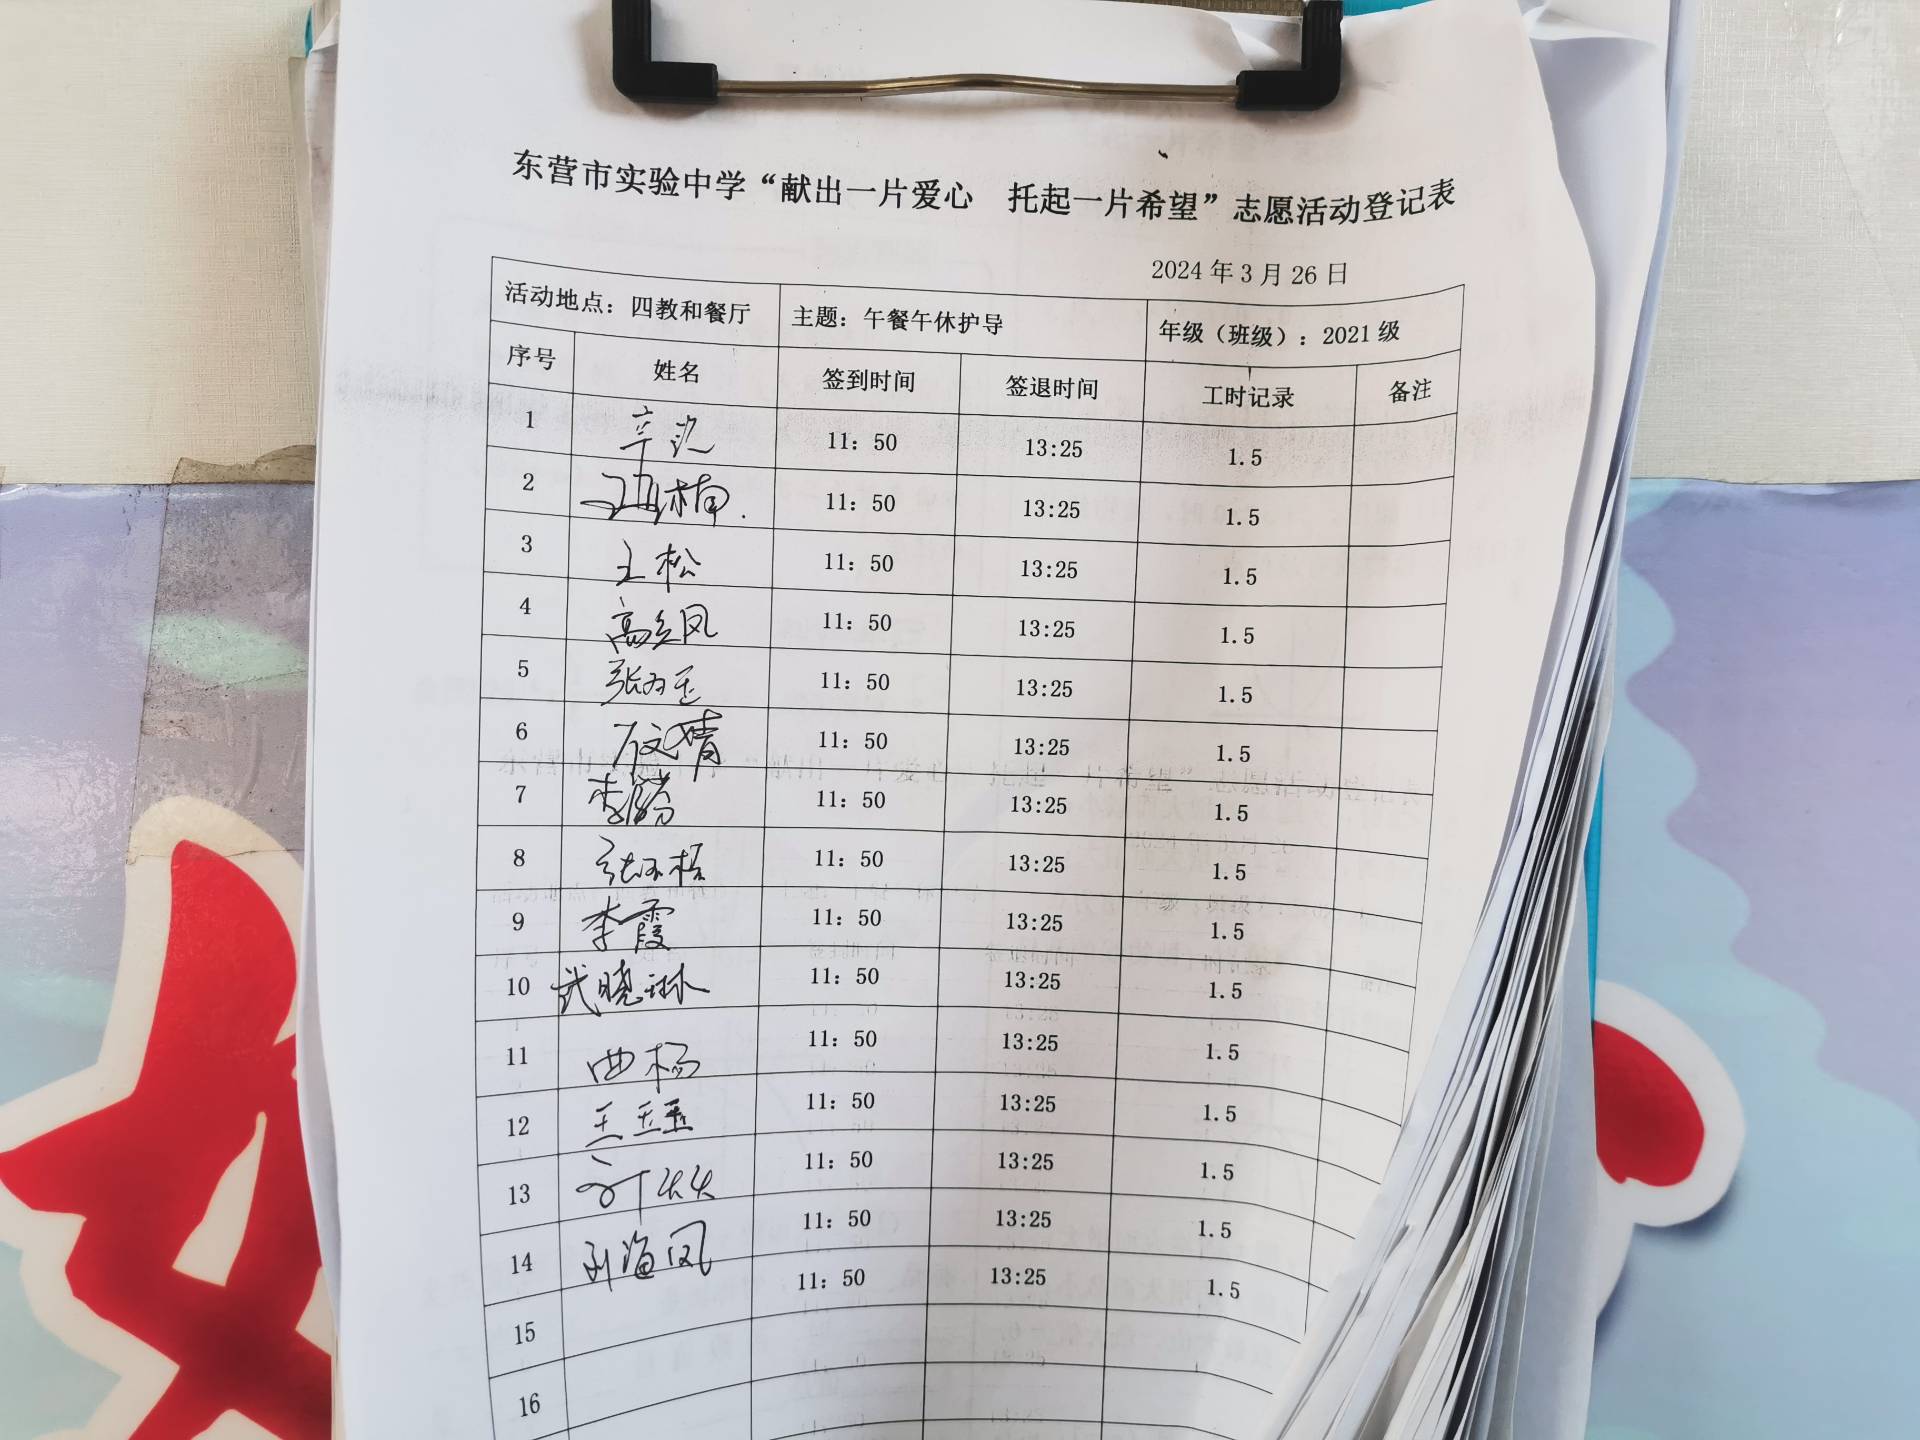 东营市实验中学“献出一片爱心 托起一片希望”志愿活动登记表
2024 年 3 月 26 日
活动地点：四教和餐厅 主题：午餐午休护导 年级（班级）：2021 级
序号 姓名 签到时间 签退时间 工时记录 备注
1 辛 11：50 13:25 1.5
2 楠 11：50 13:25 1.5
3 王松 11：50 13:25 1.5
4 高 凤 11：50 13:25 1.5
5 张 玉 11：50 13:25 1.5
6 11：50 13:25 1.5
7 李 11：50 13:25 1.5
8 张 11：50 13:25 1.5
9 李霞 11：50 13:25 1.5
10 武晓琳 11：50 13:25 1.5
11 曲杨 11：50 13:25 1.5
12 王玉玉 11：50 13:25 1.5
13 11：50 13:25 1.5
14 刘海凤 11：50 13:25 1.5
15 11：50 13:25 1.5
16